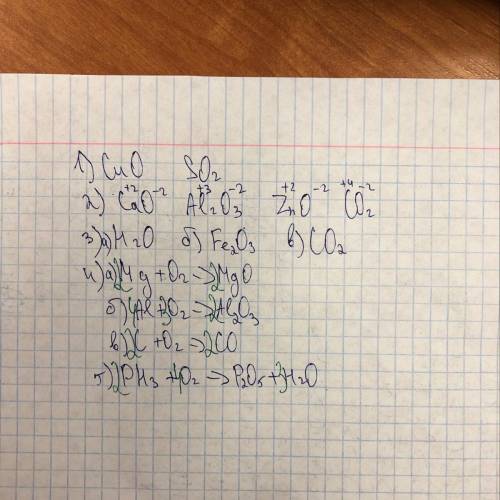 1) CuO SO₂
2) Ca⁺²O⁻² Al₂⁺³O₃⁻² Zn⁺²O⁻² C⁺⁴O₂⁻²
3) а) H₂O б) Fe₂O₃ в) CO₂
4) а) 2Mg + O₂ → 2MgO
б) 4Al + 3O₂ → 2Al₂O₃
в) 2C + O₂ → 2CO
г) 2PH₃ + 4O₂ → P₂O₅ + 3H₂O